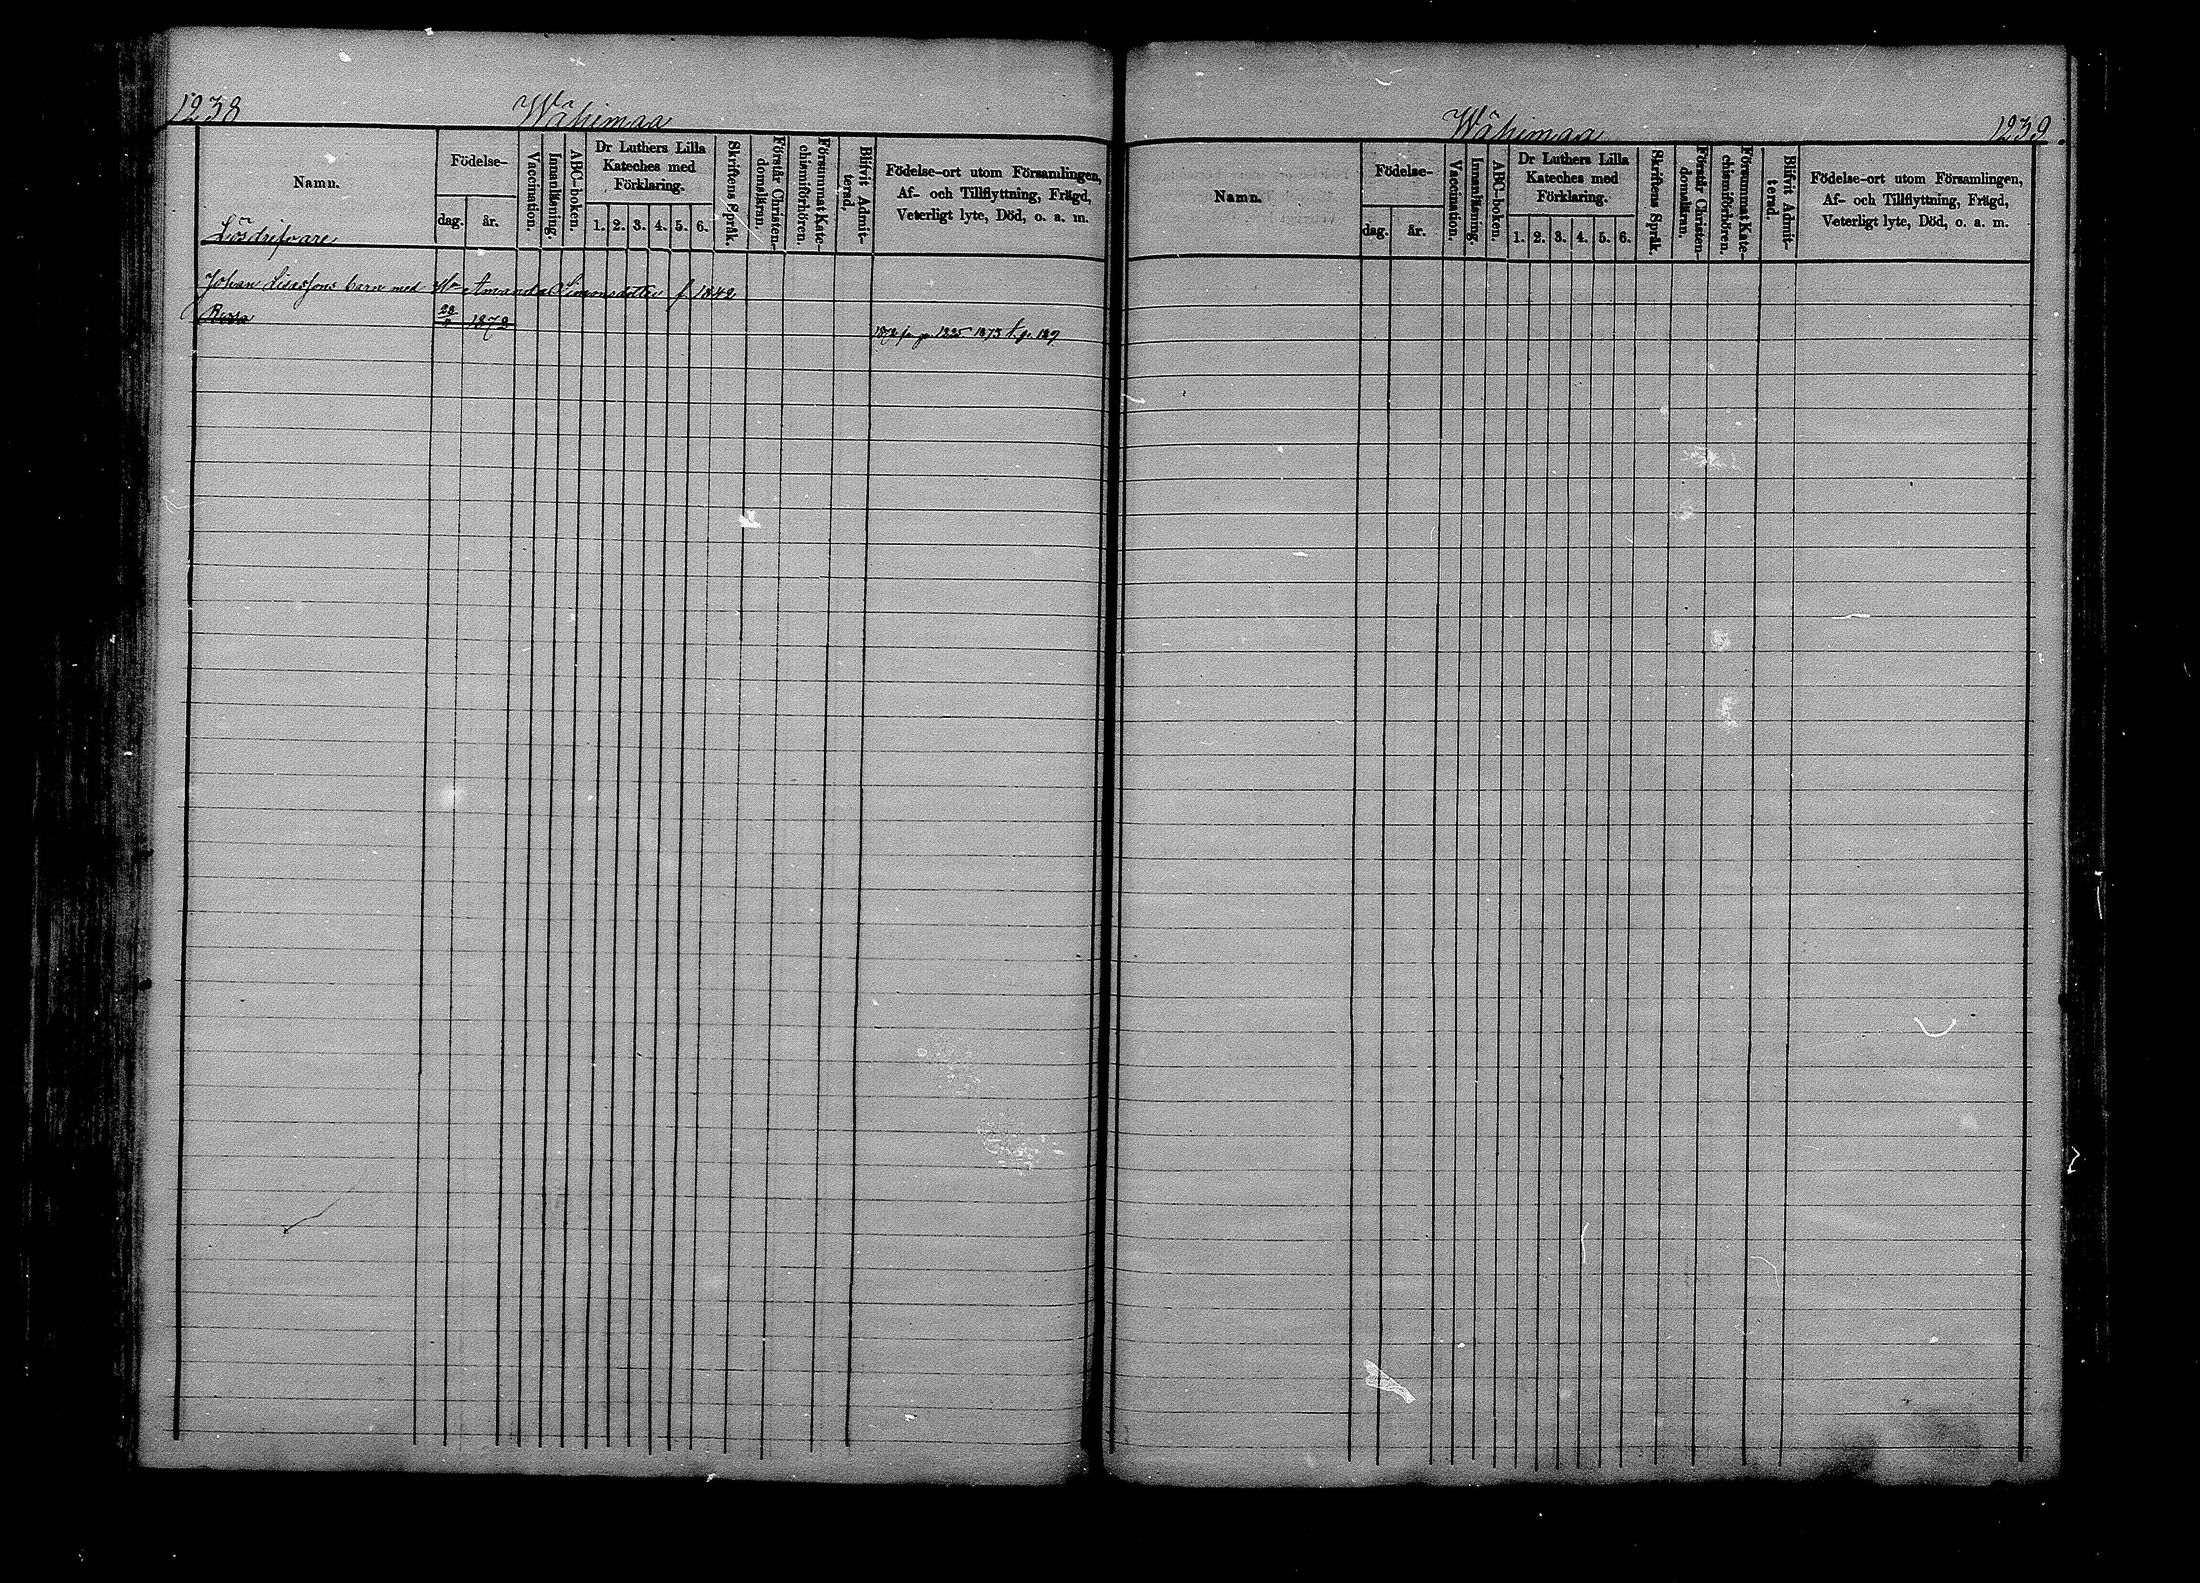 1238
Wähimaa
Namn.
Födelse-
dag.
år.
Vaccination.
Innanläsning.
ABC-boken.
Dr Luthers Lilla
Kateches med
Förklaring.
1. 2. 3. 4. 5. 6.
Skriftens Språk.
Förstår Christen-
domsläran.
Försummat Kate-
chismiförhören.
Blifvit Admit-
terad.
Födelse-ort utom Församlingen,
Af- och Tillflyttning, Frägd,
Veterligt lyte, Död, o. a. m.
Lösdrifvare
Johan barn med Amanda Simonsdotter f. 1842
1872
1225 1873
Wähimaa
1239.
Namn.
Födelse-
dag.
år.
Vaccination.
Innanläsning.
ABC-boken.
Dr Luthers Lilla
Kateches med
Förklaring.
1. 2. 3. 4. 5. 6.
Skriftens Språk.
Förstår Christen-
domsläran.
Försummat Kate-
chismiförhören.
Blifvit Admit-
terad.
Födelse-ort utom Församlingen,
Af- och Tillflyttning, Frägd,
Veterligt lyte, Död, o. a. m.